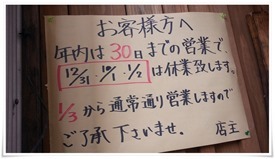 お客様方へ
年内は30日までの営業で、
12/31・1/1・1/2は休業致します。
1/3から通常通り営業しますので
ご了承下さいませ。 店主